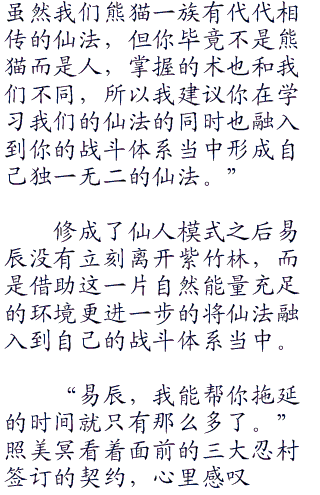 虽然我们熊猫一族有代代相
传的仙法，但你毕竟不是熊
猫而是人，掌握的术也和我
们不同，所以我建议你在学
习我们的仙法的同时也融入
到你的战斗体系当中形成自
己独一无二的仙法。”
修成了仙人模式之后易
辰没有立刻离开紫竹林，而
是借助这一片自然能量充足
的环境更进一步的将仙法融
入到自己的战斗体系当中。
“易辰，我能帮你拖延
的时间就只有那么多了。”
照美冥看着面前的三大忍村
签订的契约，心里感叹